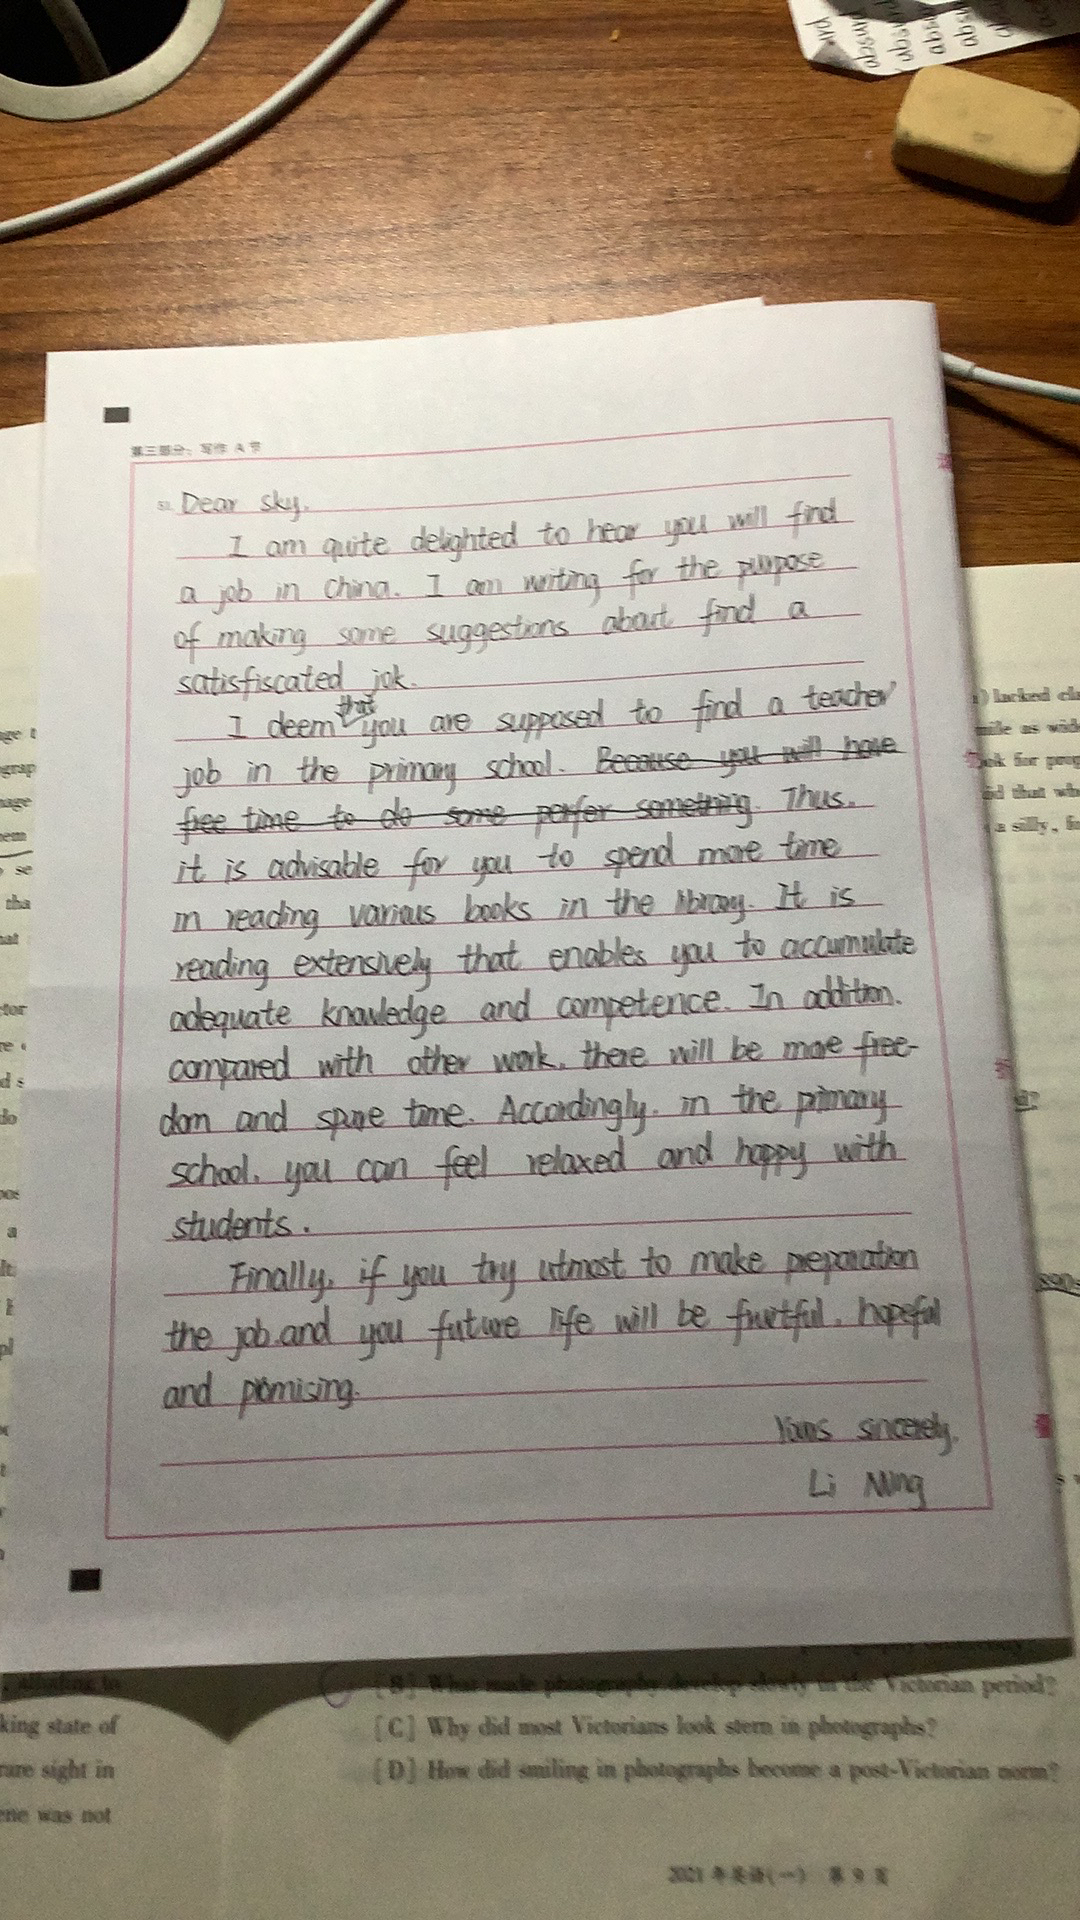 absurd
absurd
absu
abs
第三部分：写作 A 节
Dear sky,
I am quite delighted to hear you will find
a job in China. I am writing for the purpose
of making some suggestions about find a
satisfiscated jok.
that
I deem you are supposed to find a teacher
job in the primary school. Because you will have
free time to do some perfer something. Thus,
it is advisable for you to spend more time
in reading various books in the library. It is
reading extensively that enables you to accumulate
adequate knowledge and competence. In addition,
compared with other work, there will be more free-
dom and spare time. Accordingly, in the primary
school, you can feel relaxed and happy with
students.
Finally, if you try utmost to make preparation
the job.and you future life will be fruitful, hopeful
and promising.
Yours sincerely,
Li Ming
) lacked
mile as wid
ok for prog
id that wh
a silly,
se
tha
king state of
rare sight in
ene was not
[B] What made photography develop slowly in the Victorian period?
[C] Why did most Victorians look stern in photographs?
[D] How did smiling in photographs become a post-Victorian norm?
2021 年英语(一) 第 9 页